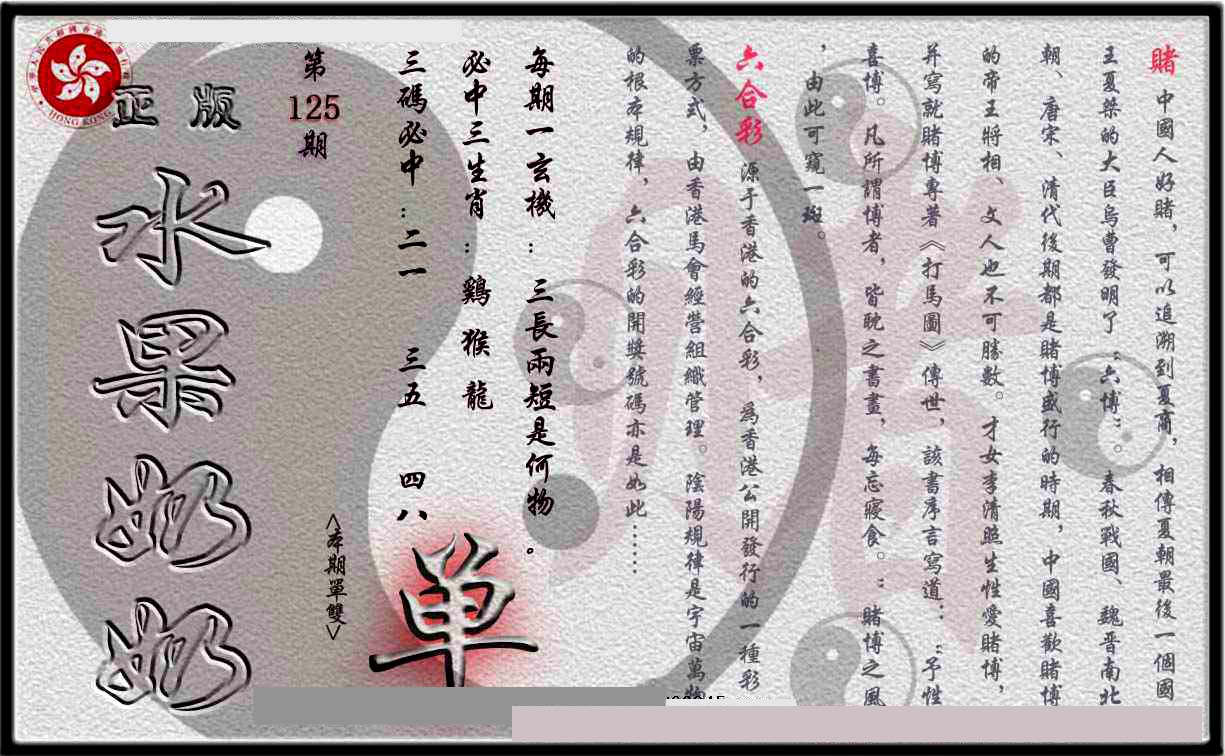 賭 中國人好賭，可以追溯到夏商，相傳夏朝最後一個國
王夏桀的大臣烏曹發明了“六博”。春秋戰國、魏晋南北
朝、唐宋、清代後期都是賭博盛行的時期，中國喜歡賭博
的帝王將相、文人也不可勝數。才女李清照生性愛賭博，
并寫就賭博專著《打馬圖》傳世，該書序言寫道：“予性
喜博。凡所謂博者，皆眈之書畫，每忘寢食。”賭博之風
，由此可窺一斑。
六合彩 源于香港的六合彩，爲香港公開發行的一種彩
票方式，由香港馬會經營組織管理。陰陽規律是宇宙萬物
的根本規律，六合彩的開獎號碼亦是如此……
每期一玄機：三長兩短是何物。
必中三生肖：鷄猴龍
三碼必中：二一 三五 四八
單
<本期單雙>
第
125
期
正版
水果奶奶
HONG KONG